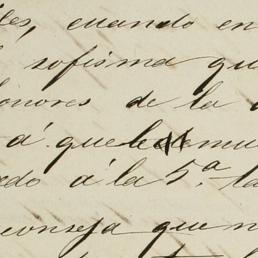 les, cuando en
sofisma qu
onores de la
á que le mu
edo á la 5.ª ta
conseja que n